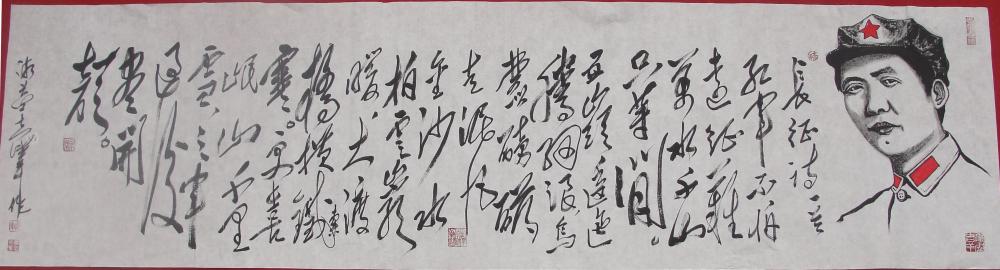 长征诗一首
红军不怕
远征难
万水千山
只等闲。
五岭逶迤
腾细浪乌
蒙磅礴
走泥丸
金沙水
拍云崖
暖大渡
桥横铁索
寒。更喜
岷山千里
雪三军
过后
尽开
颜。